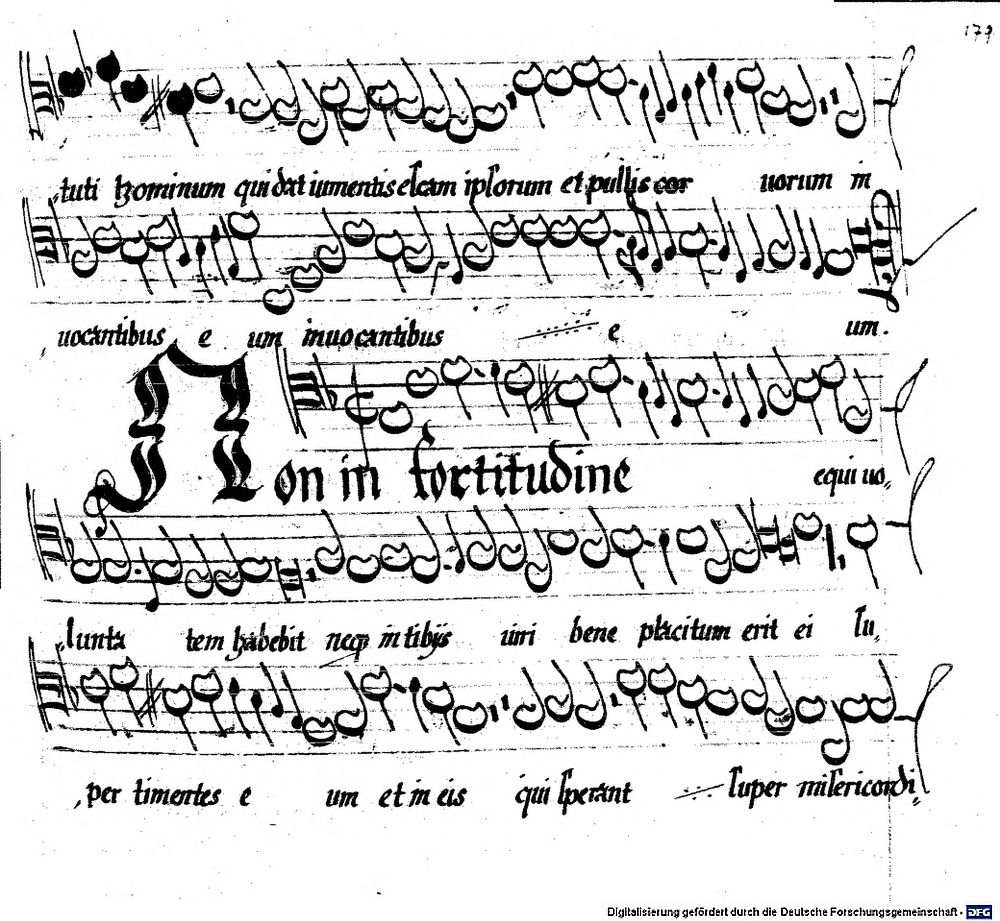 179
tuti hominum qui dat iumentis escam ipsorum et pullis cor uorum in
uocantibus e um inuocantibus e um.
Non in fortitudine equi uo„
lunta tem habebit neq in tibijs uiri bene placitum erit ei su„
per timentes e um et in eis qui sperant super misericordi„
Digitalisierung gefördert durch die Deutsche Forschungsgemeinschaft - DFG